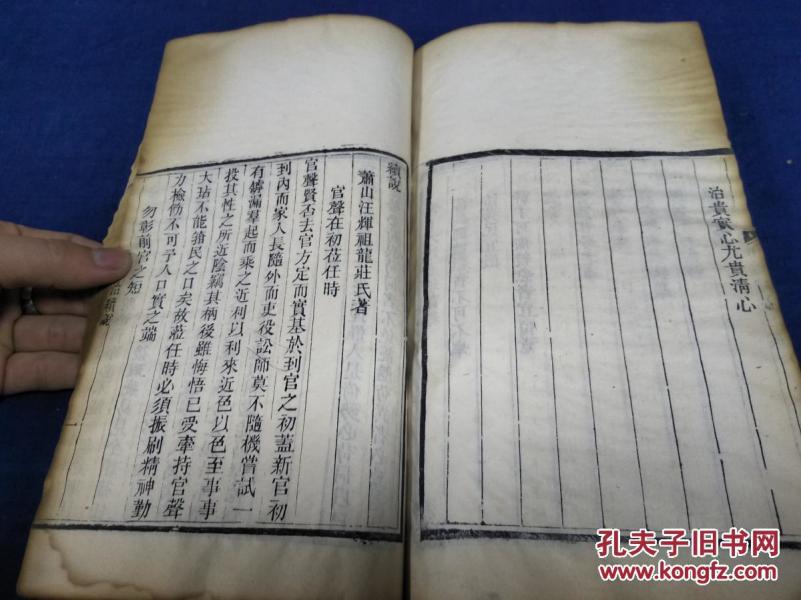 治貴實心尤貴清心
續說
蕭山汪輝祖龍莊氏著
官聲在初莅任時
官聲賢否去官方定而實基於到官之初蓋新官初
到內而家人長隨外而吏役訟師莫不隨機嘗試一
有罅漏羣起而乘之近利以利來近色以色至事事
投其性之所近陰竊其柄後雖悔悟已受牽持官聲
大玷不能箝民之口矣故莅任時必須振刷精神勤
力檢飭不可予人口實之端
勿彰前官之短
續說
孔夫子旧书网
www.kongfz.com